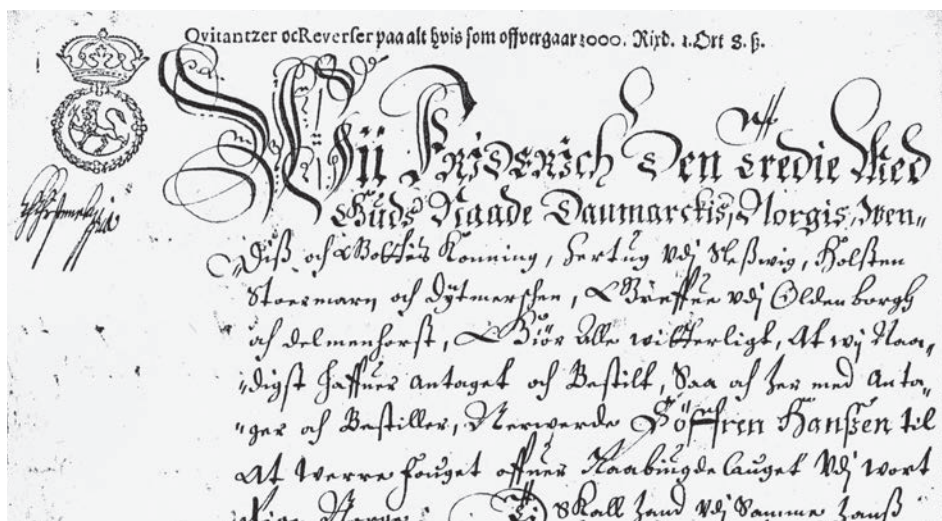 Qvitantzer oc Reverser paa alt hvis som offvergaar 1000. Rixd. 1. Ort 8. ß.
Wii Friderich Den Tredie Med
Guds Naade Danmarckis, Norgis, Wen-
dis och Gottes Konning, Hertug vdj Sleßwig, Holsten
Stoermarn och Dytmerschen, Greffue vdj Oldenborgh
och Delmenhorst, Giør Alle witterligt, At wj Naa-
digst haffuer Antaget och Bestilt, Saa och her med Anta-
ger och Bestiller, Nerwerde Søffren Hanßen til
At werre fouget offuer Raabiugdelauget vdj wort
Rige Norge skall hand vdj Samme hanß